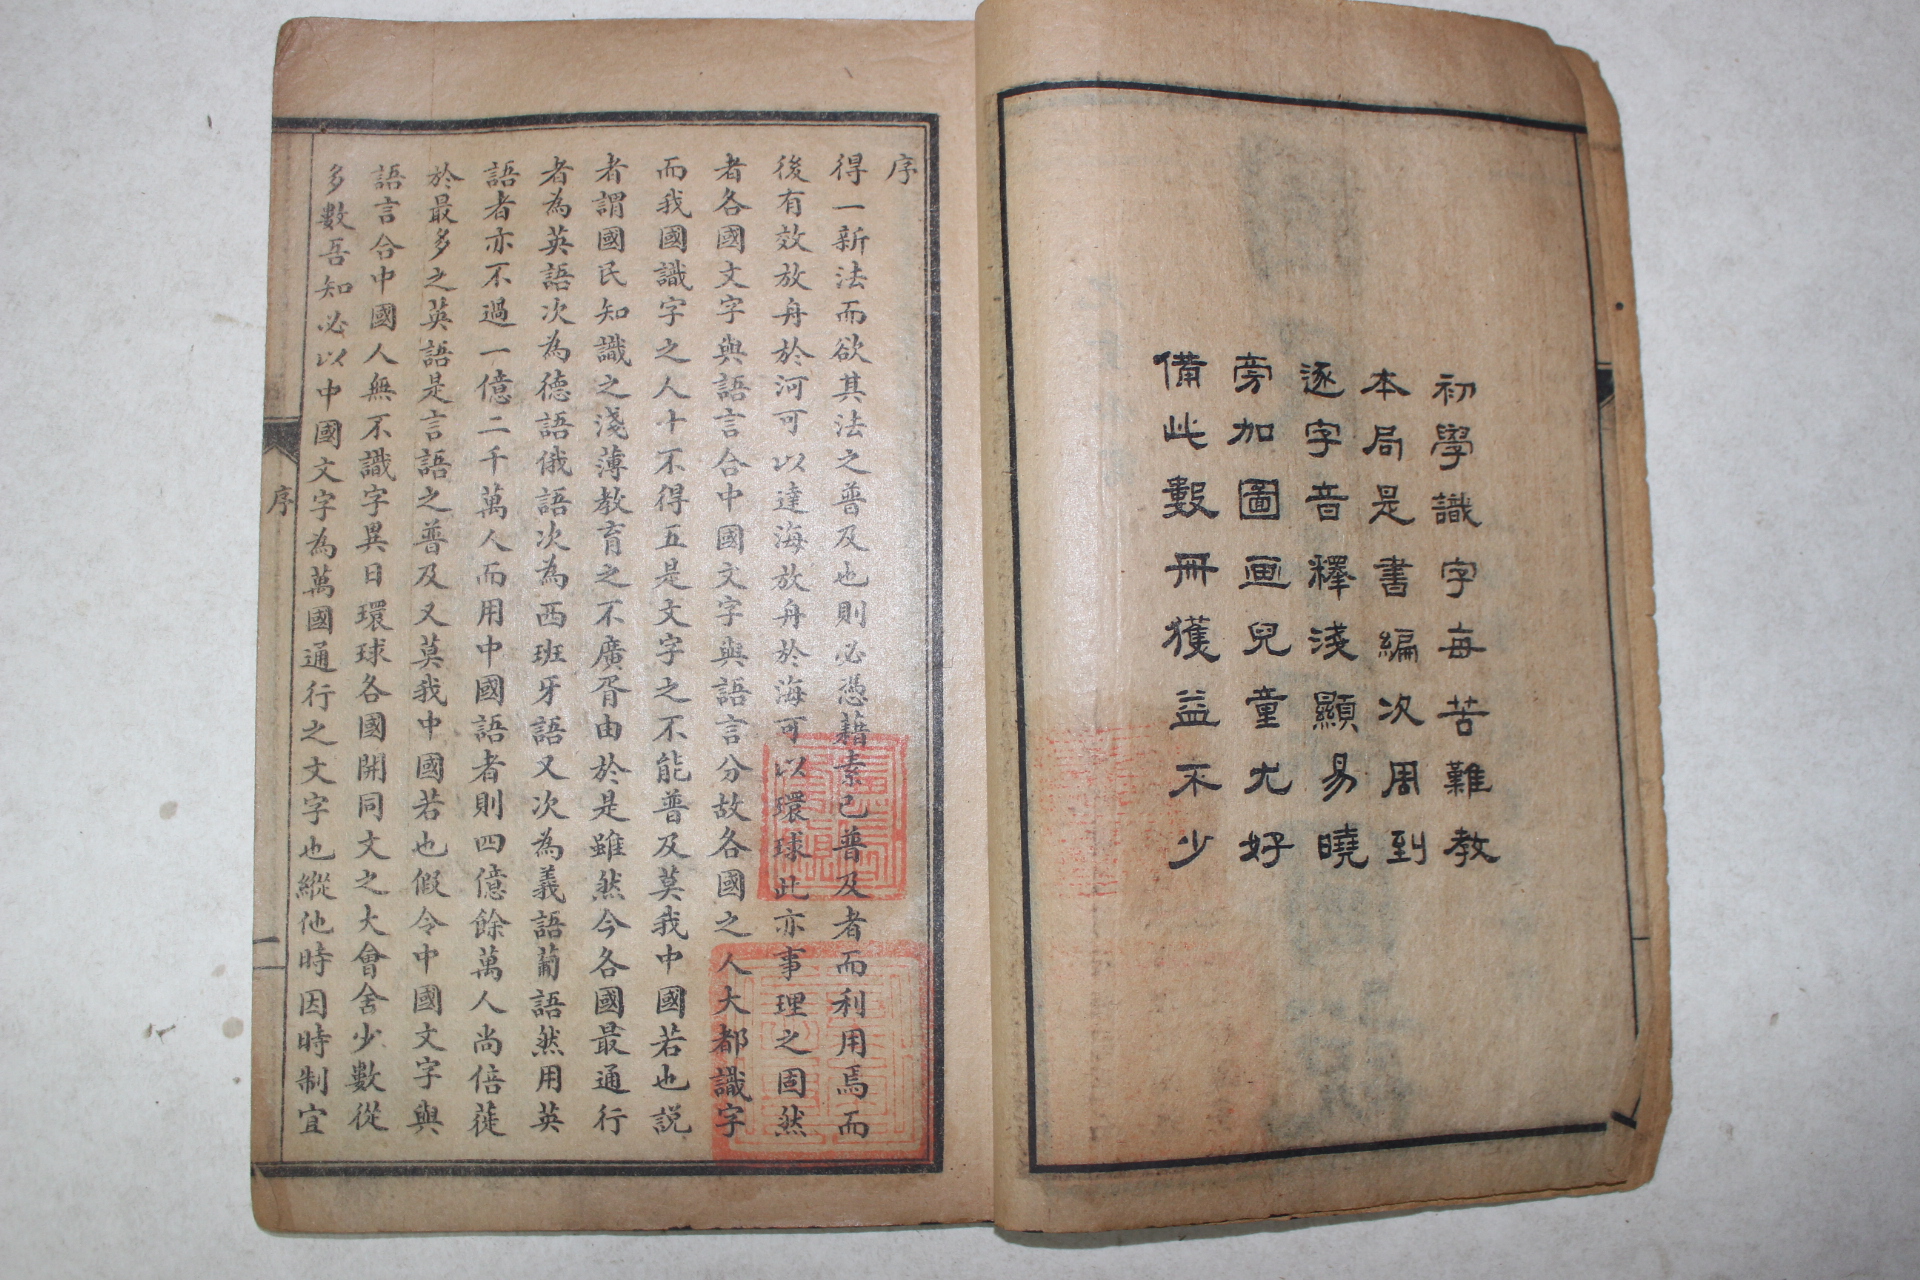 初學識字每苦難教
本局是書編次周到
逐字音釋淺顯易曉
旁加圖画兒童尤好
備此數冊獲益不少
序
得一新法而欲其法之普及也則必憑藉素已普及者而利用焉而
後有效放舟於河可以達海放舟於海可以環球此亦事理之固然
者各國文字與語言合中國文字與語言分故各國之人大都識字
而我國識字之人十不得五是文字之不能普及莫我中國若也説
者謂國民知識之淺薄教育之不廣胥由於是雖然今各國最通行
者為英語次為德語俄語次為西班牙語又次為義語葡語然用英
語者亦不過一億二千萬人而用中國語者則四億餘萬人尚倍蓰
於最多之英語是言語之普及又莫我中國若也假令中國文字與
語言合中國人無不識字異日環球各國開同文之大會舍少數從
多數吾知必以中國文字為萬國通行之文字也縱他時因時制宜
序
二